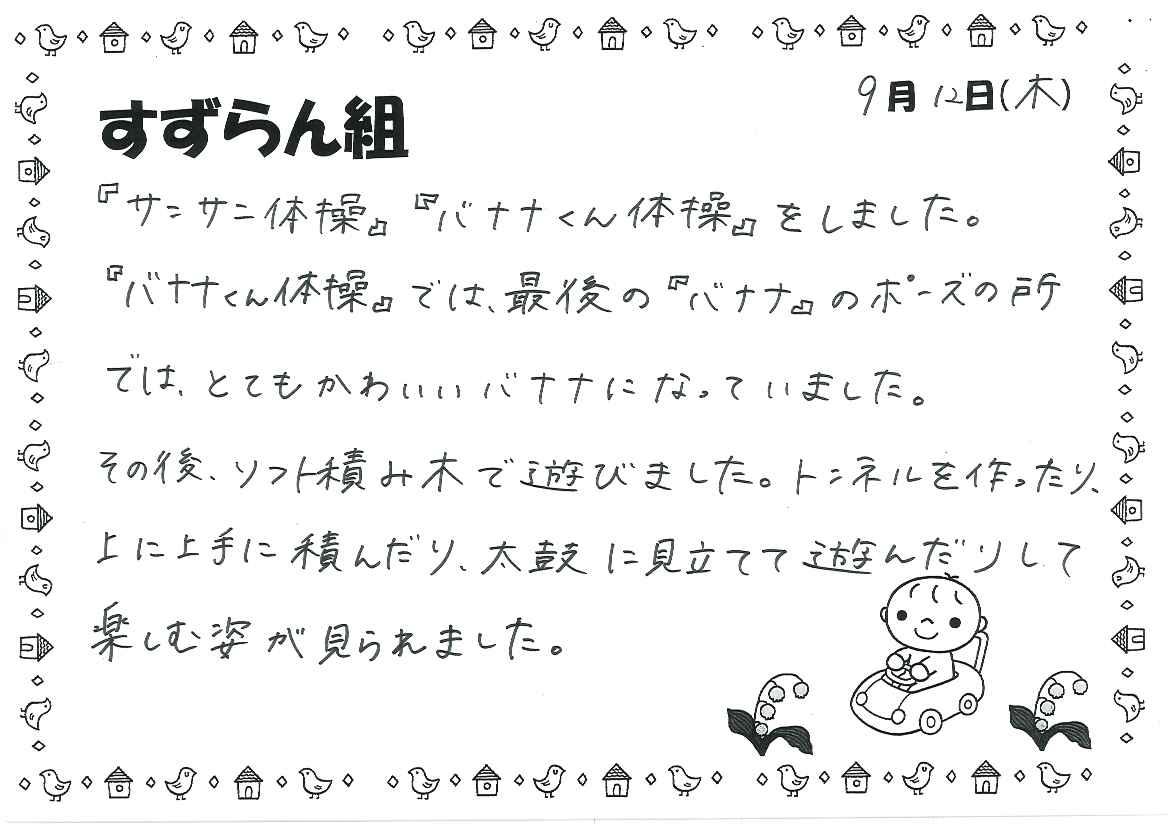 9月12日(木)
すずらん組
『サンサン体操』『バナナくん体操』をしました。
『バナナくん体操』では、最後の『バナナ』のポーズの所
では、とてもかわいいバナナになっていました。
その後、ソフト積み木で遊びました。トンネルを作ったり、
上に上手に積んだり、太鼓に見立てて遊んだりして
楽しむ姿が見られました。